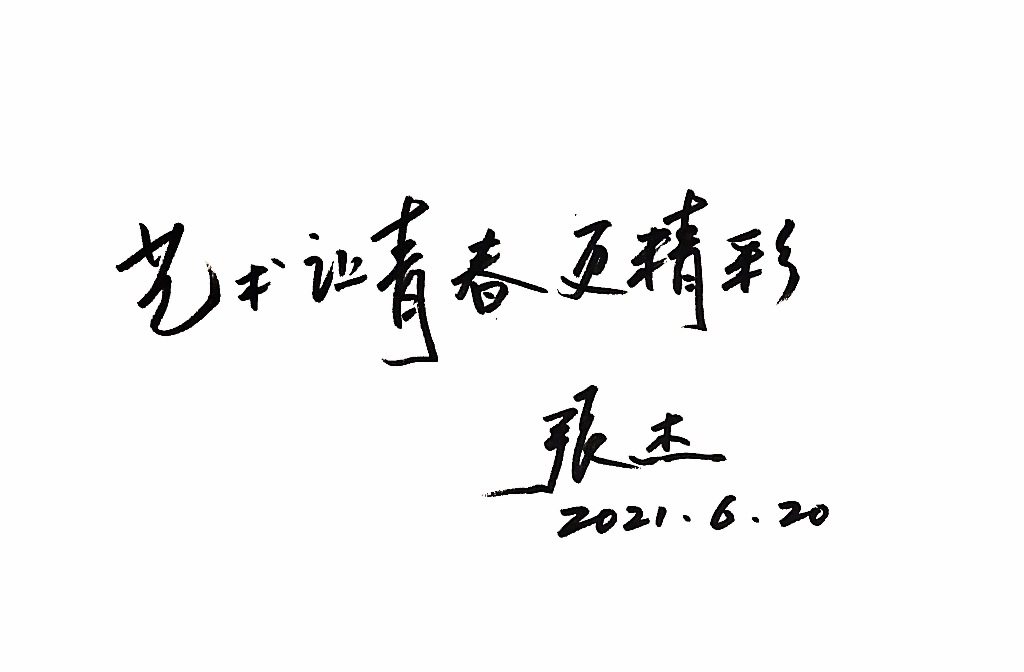 艺术让青春更精彩
張杰
2021.6.20